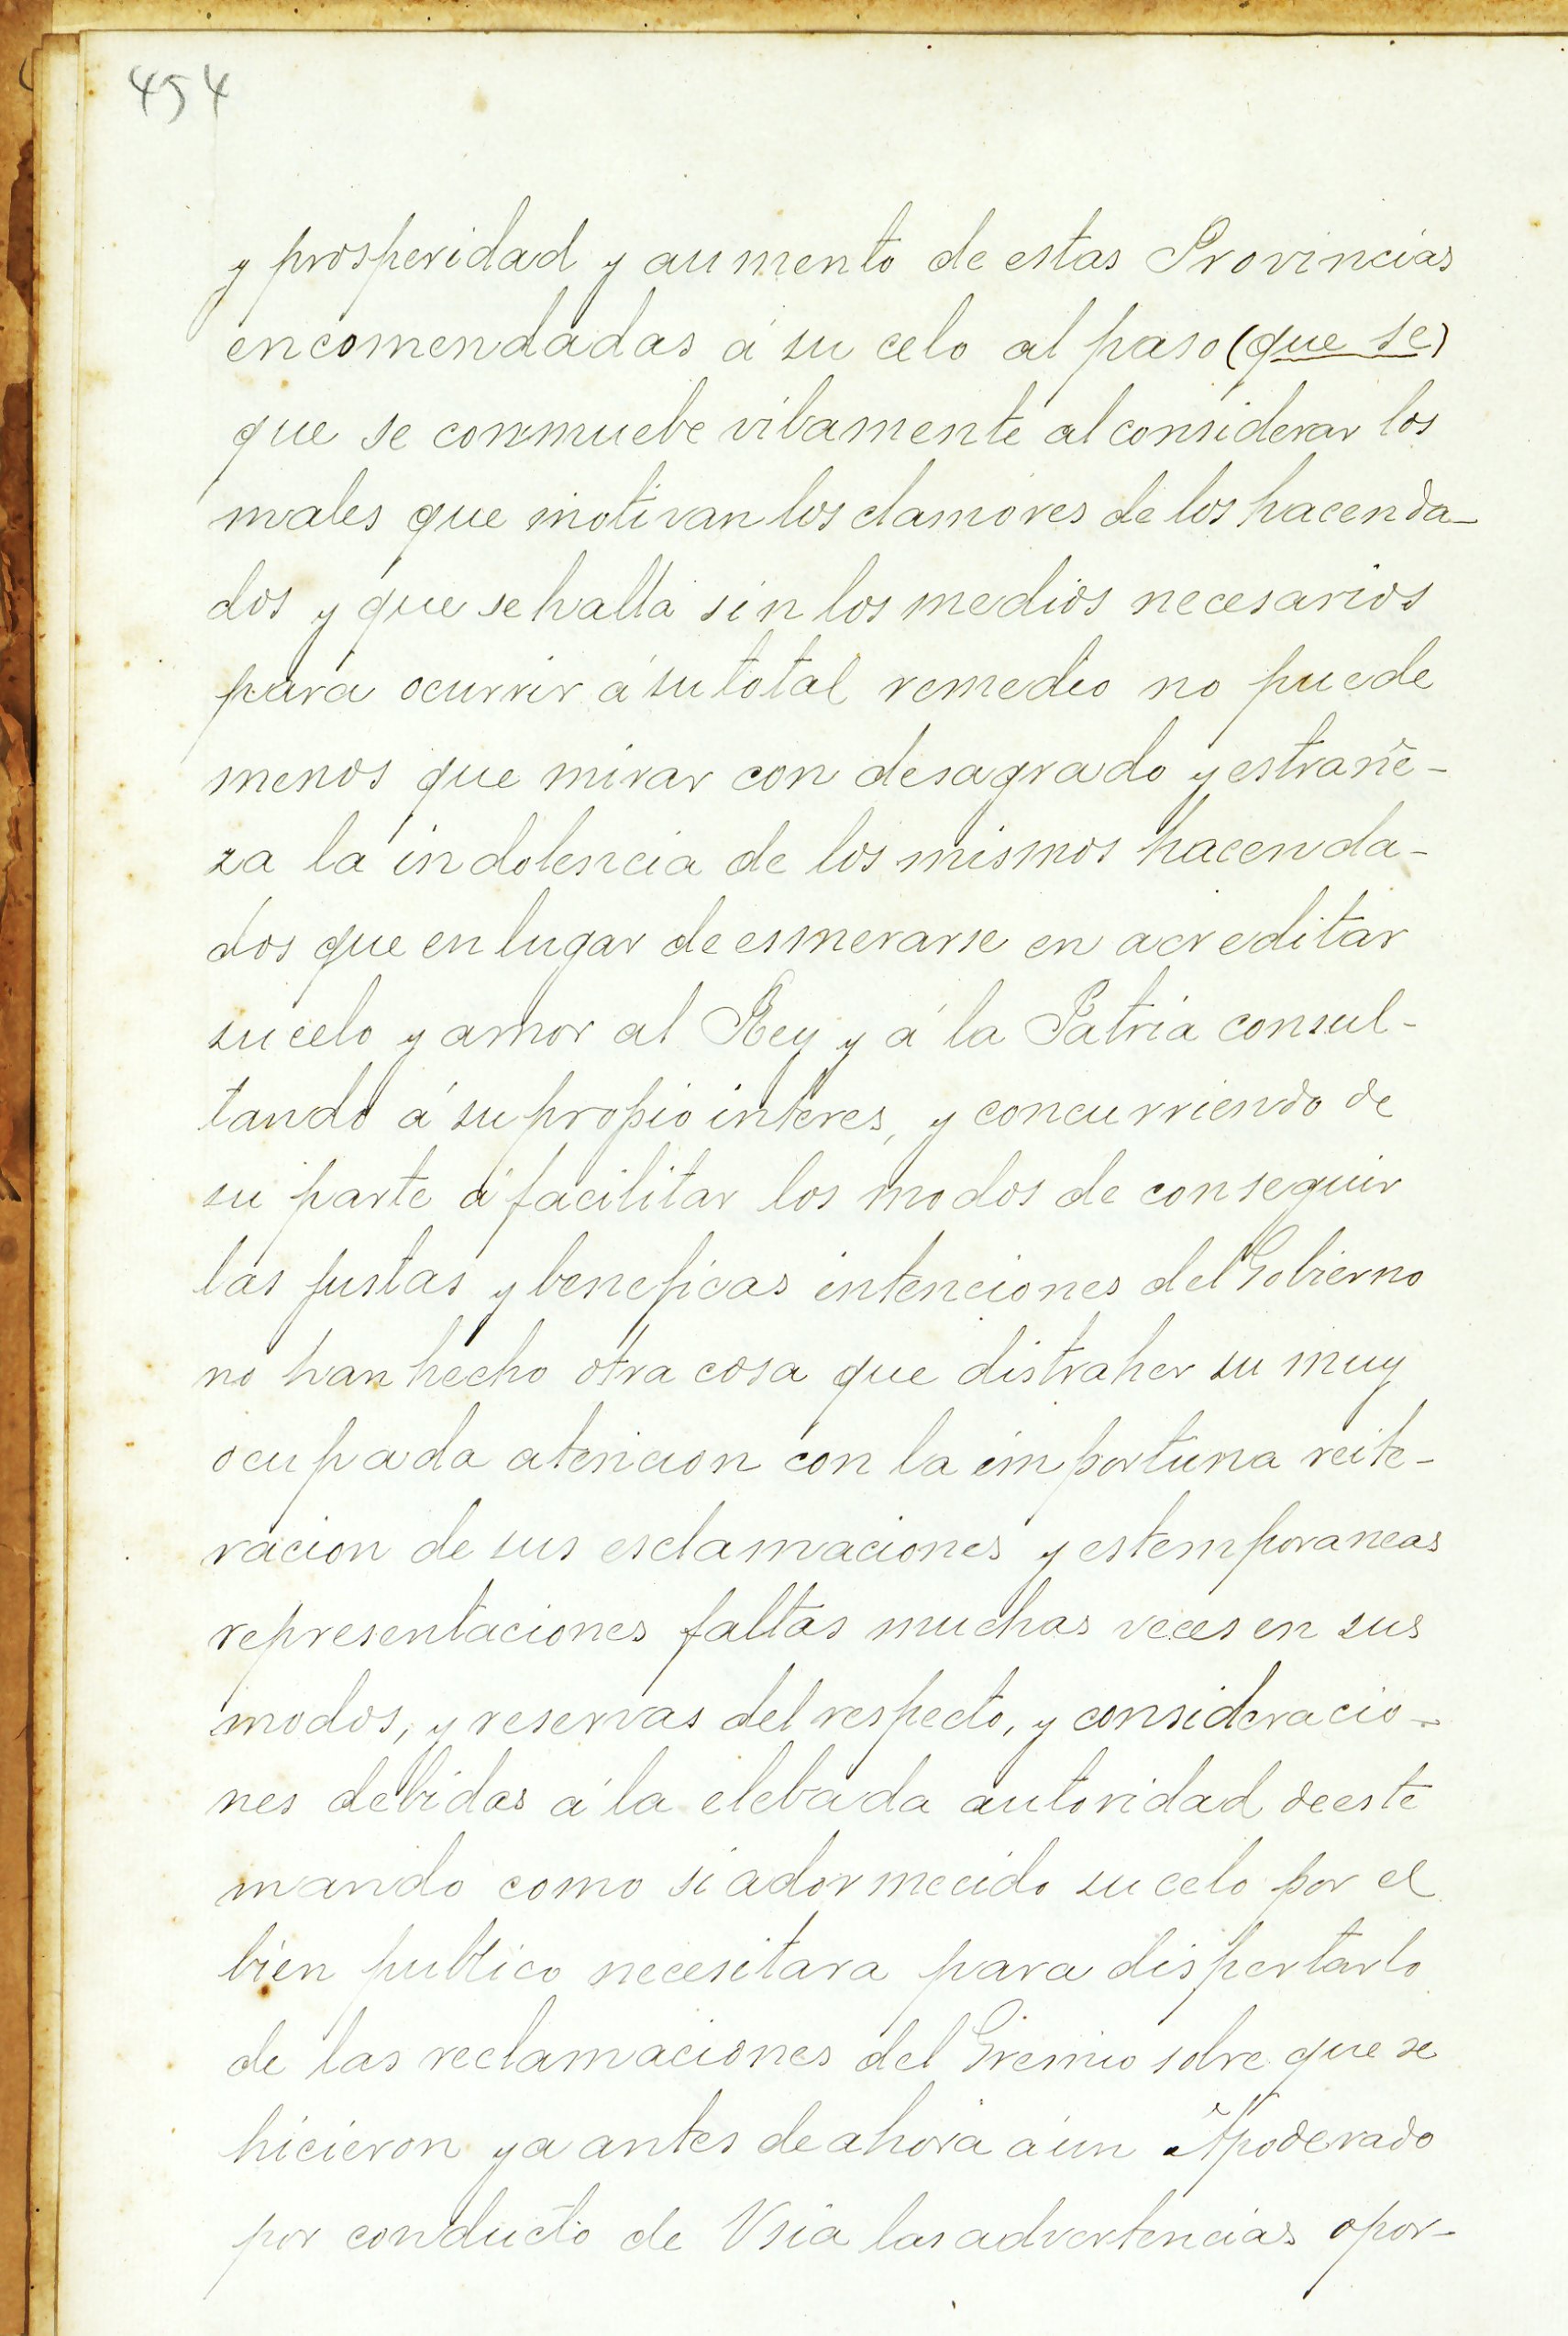 454
y prosperidad y aumento de estas Provincias
encomendadas á su celo al paso (que se)
que se conmuebe vibamente al considerar los
males que motivan los clamores de los hacenda-
dos y que se halla sin los medios necesarios
para ocurrir á su total remedio no puede
menos que mirar con desagrado y estrañe-
za la indolencia de los mismos hacenda-
dos que en lugar de esmerarse en acreditar
su celo y amor al Rey y á la Patria consul-
tando á su propio interes, y concurriendo de
su parte á facilitar los modos de conseguir
las justas y beneficas intenciones del Gobierno
no han hecho otra cosa que distraher su muy
ocupada atencion con la importuna reite-
racion de sus esclamaciones y estemporaneas
representaciones faltas muchas veces en sus
modos, y reservas del respecto, y consideracio-
nes debidas á la elebada autoridad de este
mando como si adormecido su celo por el
bien publico necesitara para dispertarlo
de las reclamaciones del Gremio sobre que se
hicieron ya antes de ahora á un Apoderado
por conducto de Vsia las advertencias opor-